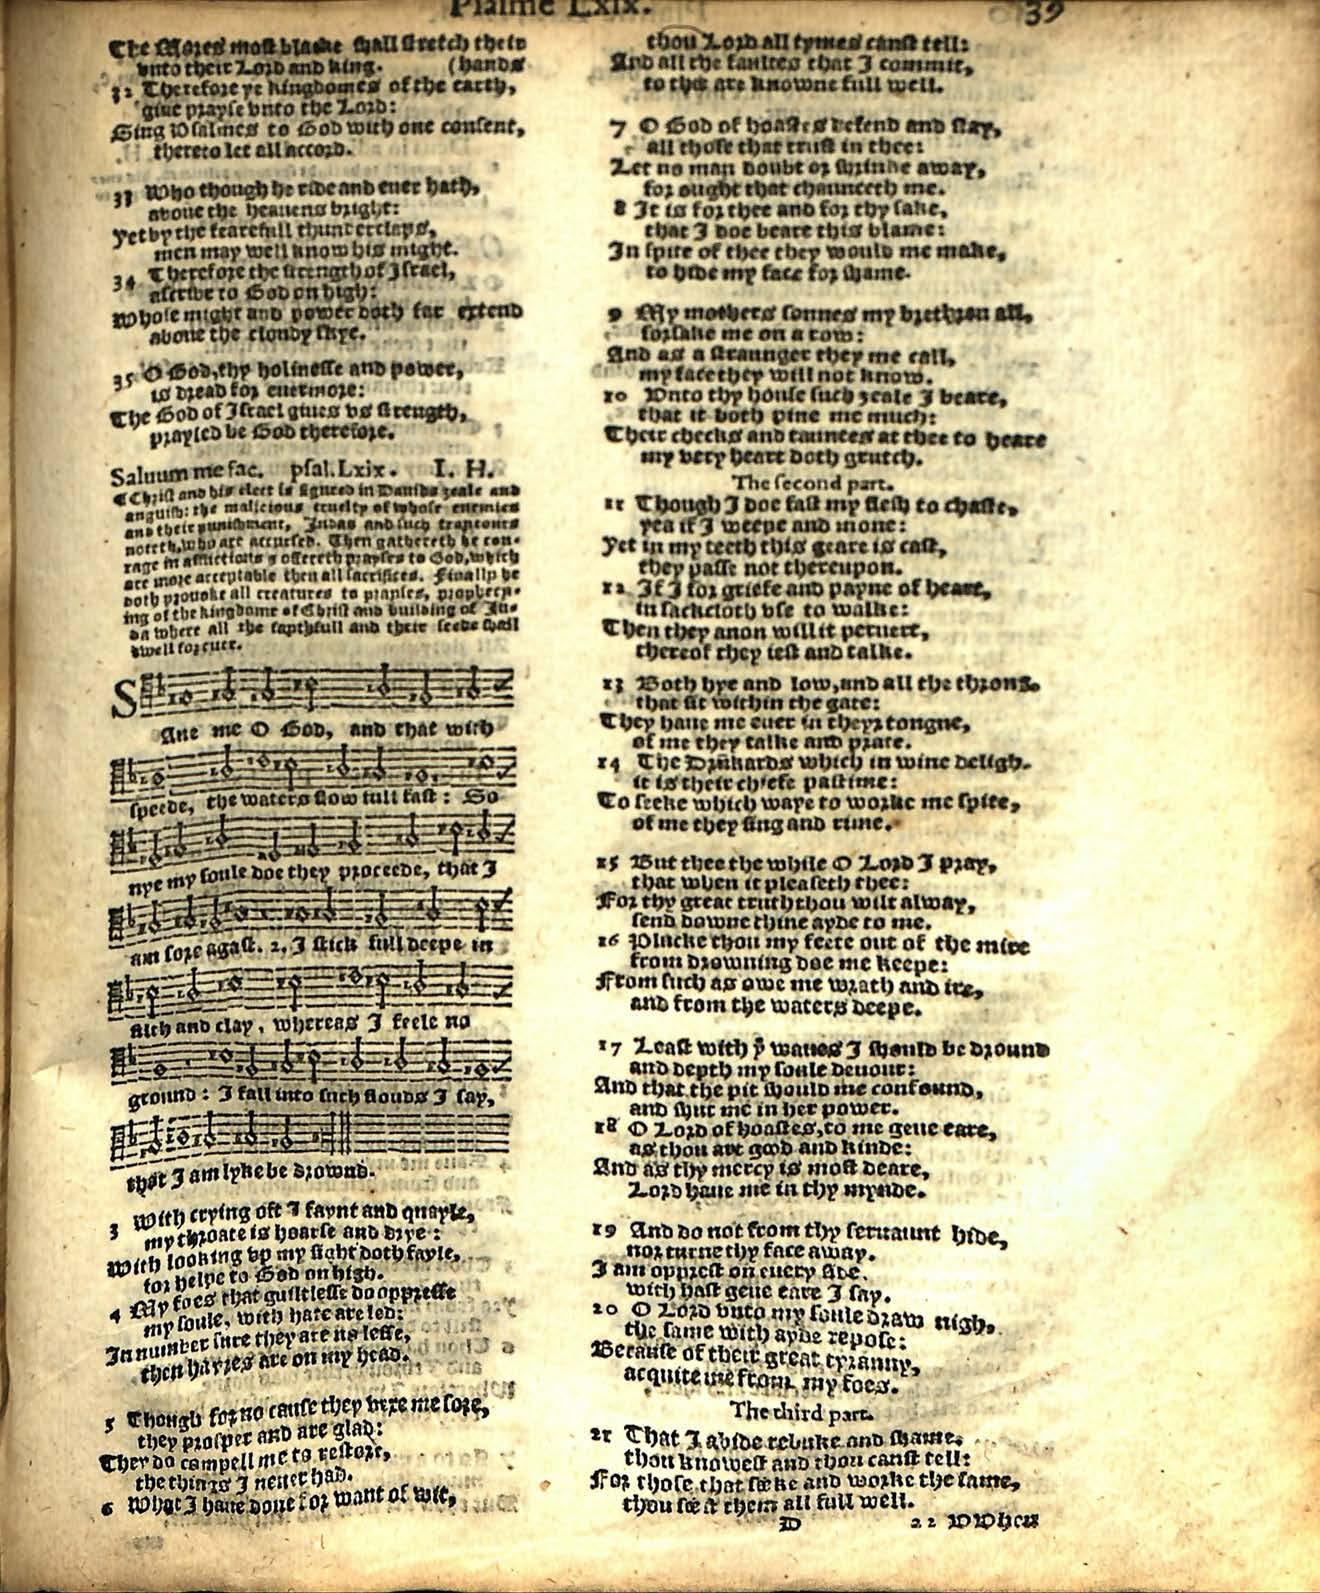 Psalme Lxix.
39
The Mores most blacke shall stretch their
vnto their Lord and king. (hands
32 Therefore ye kingdomes of the earth,
giue prayse vnto the Lord:
Sing Psalmes to God with one consent,
thereto let all accord.
33 Who though he ride and euer hath,
aboue the heauens bright:
Yet by the fearefull thunderclaps,
men may well know his might.
34 Therefore the strength of Israel,
ascribe to God on high:
Whose might and power doth far extend
aboue the cloudy skye.
35 O God, thy holinesse and power,
is dread for euermore:
The God of Israel giues vs strength,
praysed be God therefore.
Saluum me fac. psal. Lxix. I. H.
¶ Christ and his elect is figured in Dauids zeale and
anguish: the malicious cruelty of whose enemies
and their punishment, Iudas and such traytours
noteth, who are accursed. Then gathereth he cou-
rage in afflictions & offereth prayses to God, which
are more acceptable then all sacrifices. Finally he
doth prouoke all creatures to prayses, prophecy-
ing of the kingdome of Christ and building of Iu-
da where all the faythfull and their seede shall
dwell for euer.
SAue me O God, and that with
speede, the waters flow full fast: So
nye my soule doe they proceede, that I
am sore agast. 2. I stick full deepe in
filth and clay, whereas I feele no
ground: I fall into such flouds I say,
that I am lyke be drownd.
3 With crying oft I faynt and quayle,
my throate is hoarse and drye:
With looking vp my sight doth fayle,
for helpe to God on high.
4 My foes that guiltlesse do oppresse
my soule, with hate are led:
In number sure they are no lesse,
then hayres are on my head.
5 Though for no cause they vexe me sore,
they prosper and are glad:
They do compell me to restore,
the things I neuer had.
6 What I haue done for want of wit,
thou Lord all tymes canst tell:
And all the faultes that I commit,
to thee are knowne full well.
7 O God of hoastes defend and stay,
all those that trust in thee:
Let no man doubt or shrinke away,
for ought that chaunceth me.
8 It is for thee and for thy sake,
that I doe beare this blame:
In spite of thee they would me make,
to hide my face for shame.
9 My mothers sonnes my brethren all,
forsake me on a row:
And as a straunger they me call,
my face they will not know.
10 Vnto thy house such zeale I beare,
that it doth pine me much:
Their checks and tauntes at thee to heare
my very heart doth grutch.
The second part.
11 Though I doe fast my flesh to chaste,
yea if I weepe and mone:
Yet in my teeth this geare is cast,
they passe not thereupon.
12 If I for griefe and payne of heart,
in sackcloth vse to walke:
Then they anon will it peruert,
thereof they iest and talke.
13 Both hye and low, and all the throng.
that sit within the gate:
They haue me euer in theyr tongue,
of me they talke and prate.
14 The Drũkards which in wine deligh.
it is their chiefe pastime:
To seeke which waye to worke me spite,
of me they sing and rime.
15 But thee the while O Lord I pray,
that when it pleaseth thee:
For thy great truth thou wilt alway,
send downe thine ayde to me.
16 Plucke thou my feete out of the mire
from drowning doe me keepe:
From such as owe me wrath and ire,
and from the waters deepe.
17 Least with yͤ waues I should be dround
and depth my soule deuour:
And that the pit should me confound,
and shut me in her power.
18 O Lord of hoastes, to me geue eare,
as thou art good and kinde:
And as thy mercy is most deare,
Lord haue me in thy mynde.
19 And do not from thy seruaunt hide,
nor turne thy face away.
I am opprest on euery side.
with hast geue eare I say.
20 O Lord vnto my soule draw nigh,
the same with ayde repose:
Because of their great tyranny,
acquite me from my foes.
The third part.
21 That I abide rebuke and shame.
thou knowest and thou canst tell:
For those that seeke and worke the same,
thou seest them all full well.
D 22 VVhen